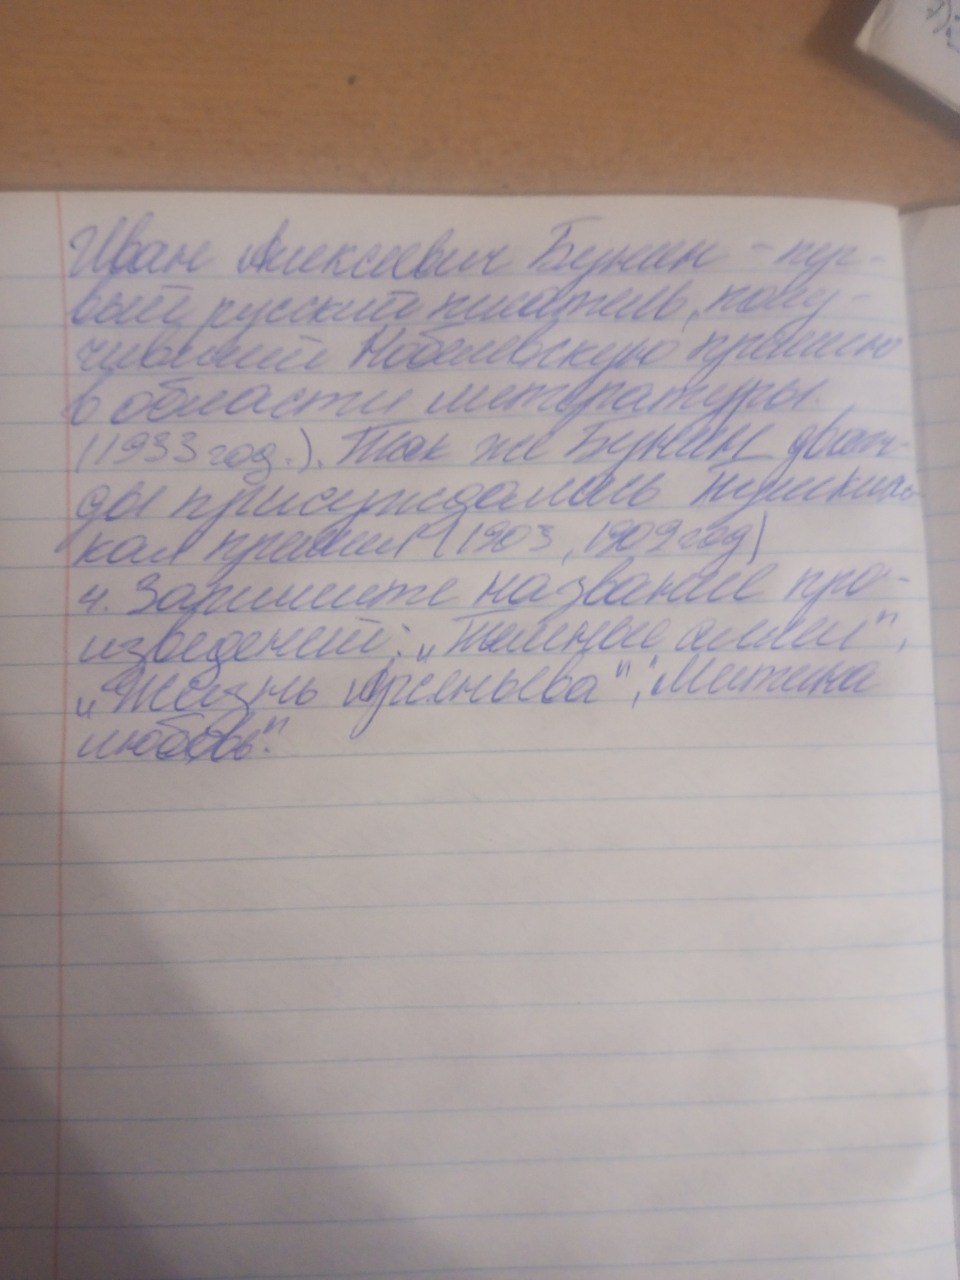 Иван Алексеевич Бунин – пер-
вый русский писатель, полу-
чивший Нобелевскую премию
в области литературы.
(1933 год.). Так же Бунин дваж-
ды присуждалась Пушкинс-
кая премия (1903, 1909 год)
4. Запишите название про-
изведений: „Темные аллеи",
„Жизнь Арсеньева", "Митина
любовь".